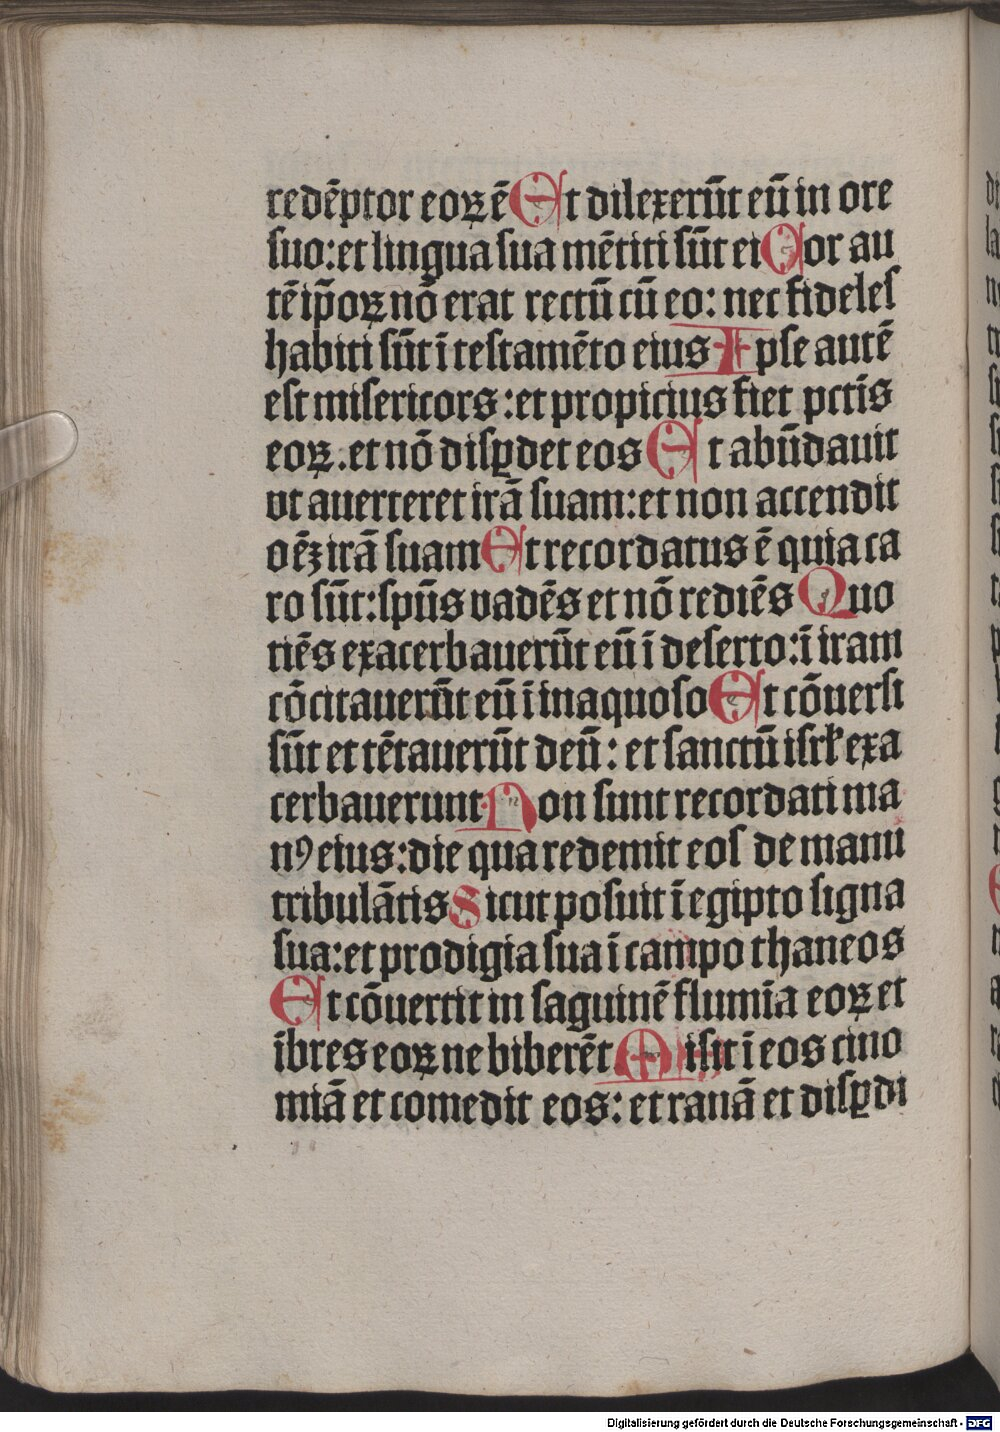 redēptor eoꝝ ē Et dilexerūt eū in ore
suo: et lingua sua mētiti sūt ei Cor au
tē ip̄oꝝ nō erat rectū cū eo: nec fideles
habiti sūt ī testamēto eius Ipse autē
est misericors: et propicius fiet pctīs
eoꝝ. et nō disꝑdet eos Et abūdauit
vt auerteret irā suam: et non accendit
oēꝫ irā suam Et recordatus ē quia ca
ro sūt: spūs vadēs et nō rediēs Quo
tiēs exacerbauerūt eū ī deserto: ī iram
cōcitauerūt eū ī inaquoso Et cōuersi
sūt et tētauerūt deū: et sanctū isrl̄ exa
cerbauerunt Non sunt recordati ma
nꝰ eius: die qua redemit eos de manu
tribulātis Sicut posuit ī egipto signa
sua: et prodigia sua ī campo thaneos
Et cōuertit in saguinē flumīa eoꝝ et
ībres eoꝝ ne biberēt Misit ī eos cino
miā et comedit eos: et ranā et disꝑdi
Digitalisierung gefördert durch die Deutsche Forschungsgemeinschaft - DFG